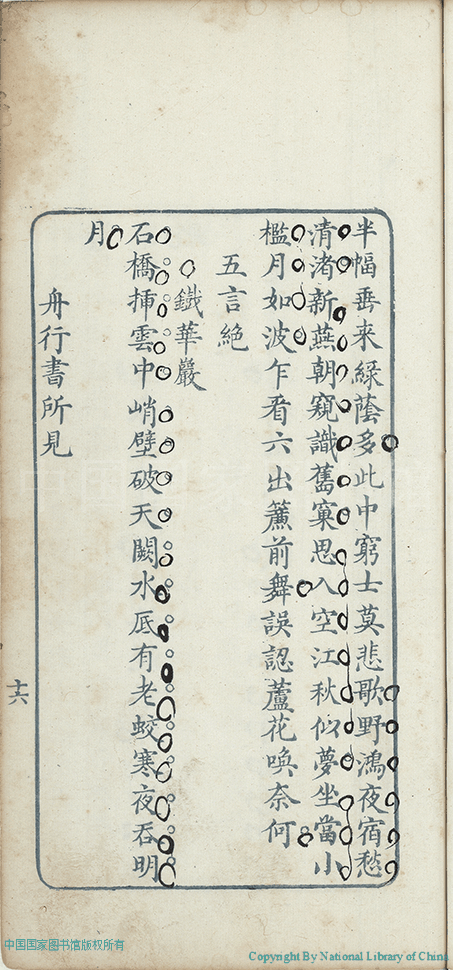 半幅垂来綠蔭多此中窮士莫悲歌野鴻夜宿愁
清渚新燕朝窺識舊窠思入空江秋似夢坐當小
檻月如波乍看六出簾前舞誤認蘆花喚奈何
五言絕
鐵華巖
石橋揷雲中峭壁破天闕水底有老蛟寒夜吞明
月
舟行書所見
十六
中国国家图书馆版权所有
Copyright By National Library of China